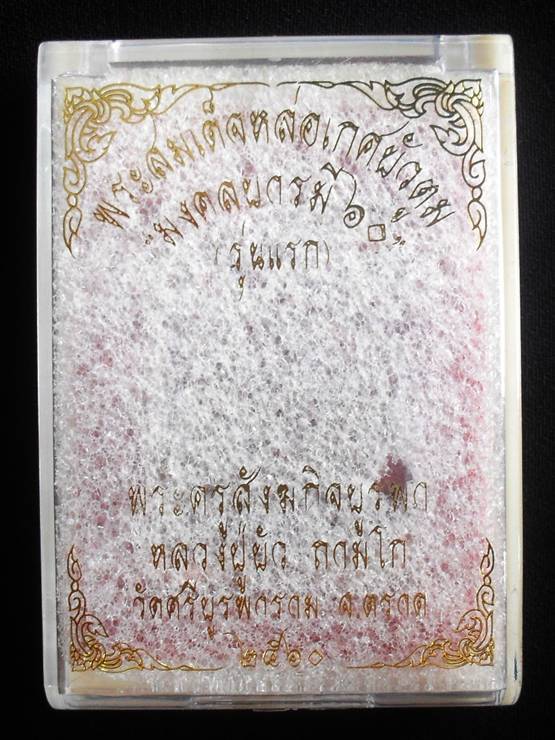 พระสมเด็จหล่อเกศบัวตูม
"มงคลบารมี ๖๐"
(รุ่นแรก)
พระครูสังฆกิจบูรพา
หลวงปู่บัว ถามโก
วัดศรีบูรพาราม จ.ตราด
๒๕๖๐